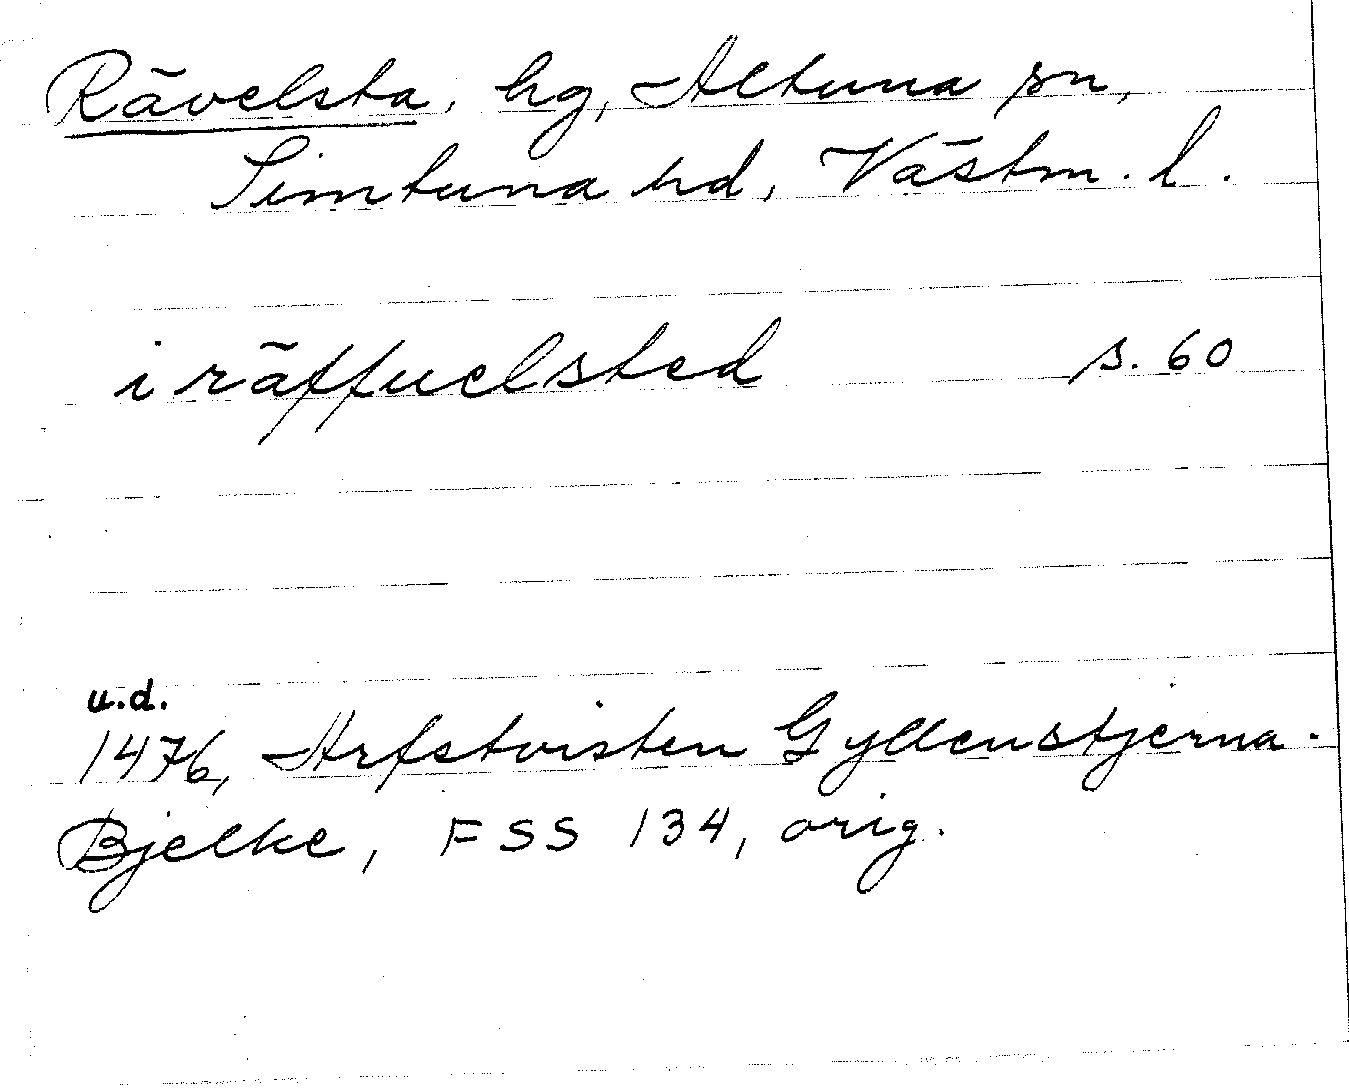 Rävelsta, hg, Altuna sn,
Simtuna hd, Västm. l.
i räffuelsted s. 60
u.d.
1476, Arfstvisten Gyllenstjerna-
Bjelke, FSS 134, orig.